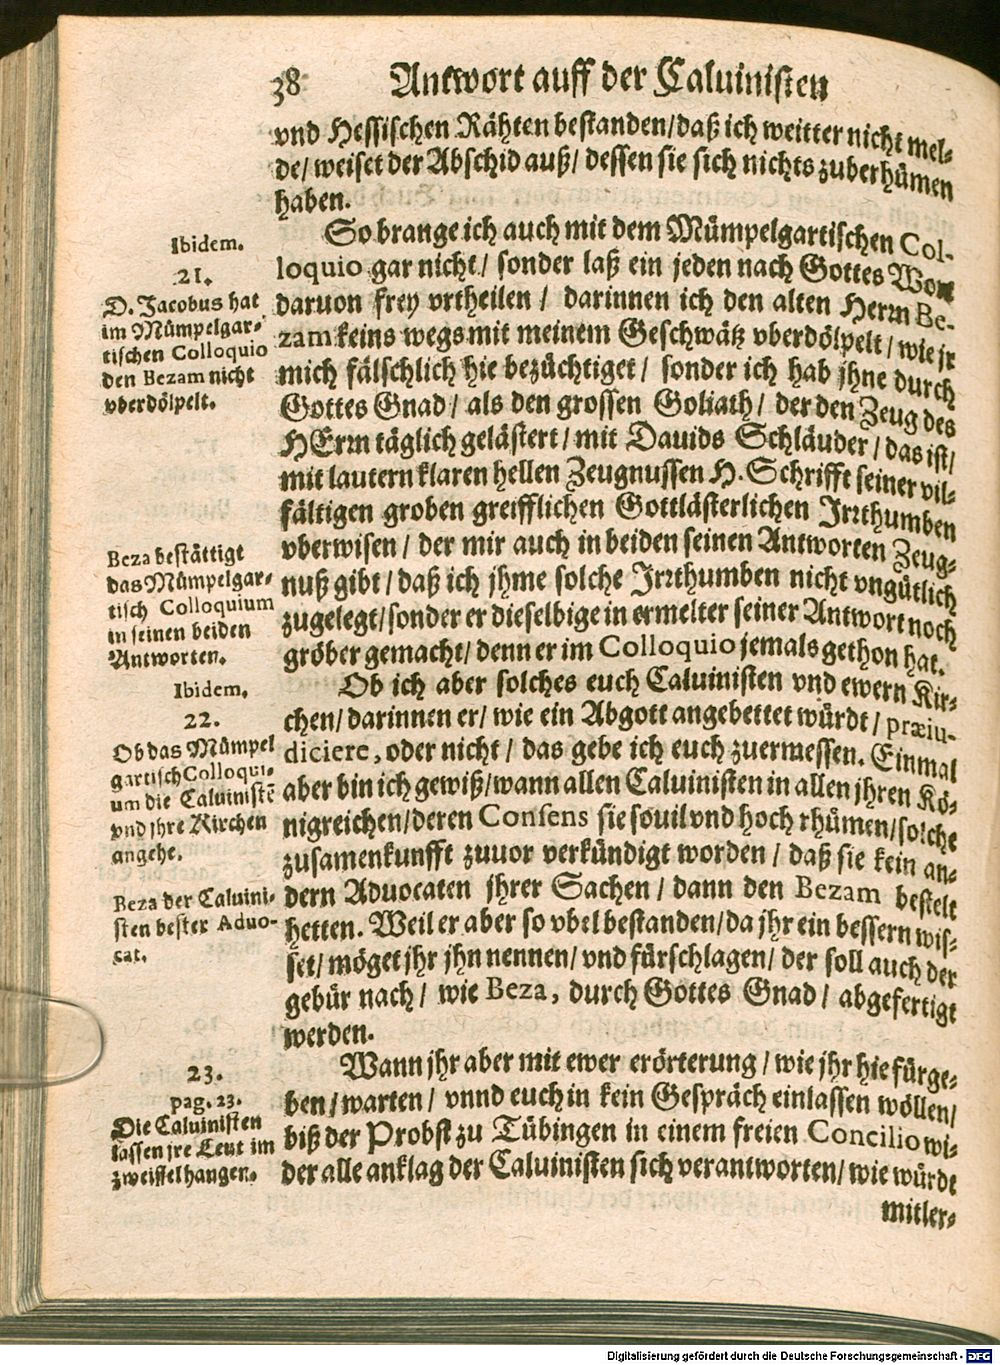 38 Antwort auff der Caluinisten
vnd Hessischen Rähten bestanden/daß ich weitter nicht mel-
de/ weiset der Abschid auß/ dessen sie sich nichts zuberhümen
haben.
So brange ich auch mit dem Mümpelgartischen Col-
loquio gar nicht/ sonder laß ein jeden nach Gottes Wort
daruon frey vrtheilen/ darinnen ich den alten Herrn Be-
zam keins wegs mit meinem Geschwätz vberdölpelt/ wie jr
mich fälschlich hie bezüchtiget/ sonder ich hab jhne durch
Gottes Gnad/ als den grossen Goliath/ der den Zeug des
HErrn täglich gelästert/ mit Dauids Schläuder/ das ist/
mit lautern klaren hellen Zeugnussen H. Schrifft seiner vil-
fältigen groben greifflichen Gottlästerlichen Irrthumben
vberwisen/ der mir auch in beiden seinen Antworten Zeug-
nuß gibt/ daß ich jhme solche Irrthumben nicht vngütlich
zugelegt/sonder er dieselbige in ermelter seiner Antwort noch
gröber gemacht/ denn er im Colloquio jemals gethon hat.
Ob ich aber solches euch Caluinisten vnd ewern Kir-
chen/ darinnen er/ wie ein Abgott angebettet würdt/ præiu-
diciere, oder nicht/ das gebe ich euch zuermessen. Einmal
aber bin ich gewiß/wann allen Caluinisten in allen jhren Kö-
nigreichen/deren Consens sie souil vnd hoch rhümen/solche
zusamenkunfft zuuor verkündigt worden/ daß sie kein an-
dern Aduocaten jhrer Sachen/ dann den Bezam bestelt
hetten. Weil er aber so vbel bestanden/da jhr ein bessern wis-
set/ möget jhr jhn nennen/ vnd fürschlagen/ der soll auch der
gebür nach/ wie Beza, durch Gottes Gnad/ abgefertigt
werden.
Wann jhr aber mit ewer erörterung/ wie jhr hie fürge-
ben/ warten/ vnnd euch in kein Gespräch einlassen wöllen/
biß der Probst zu Tübingen in einem freien Concilio wi-
der alle anklag der Caluinisten sich verantworten/ wie würdt
mitler-
Ibidem.
21.
D. Jacobus hat
im Mümpelgar-
tischen Colloquio
den Bezam nicht
vberdölpelt.
Beza bestättigt
das Mümpelgar-
tisch Colloquium
in seinen beiden
Antworten.
Ibidem.
22.
Ob das Mümpel
gartisch Colloqui-
um die Caluinistẽ
vnd jhre Kirchen
angehe.
Beza der Caluini-
sten bester Aduo-
cat.
23.
pag. 23.
Die Caluinisten
lassen jre Leut im
zweiffel hangen.
Digitalisierung gefördert durch die Deutsche Forschungsgemeinschaft - DFG